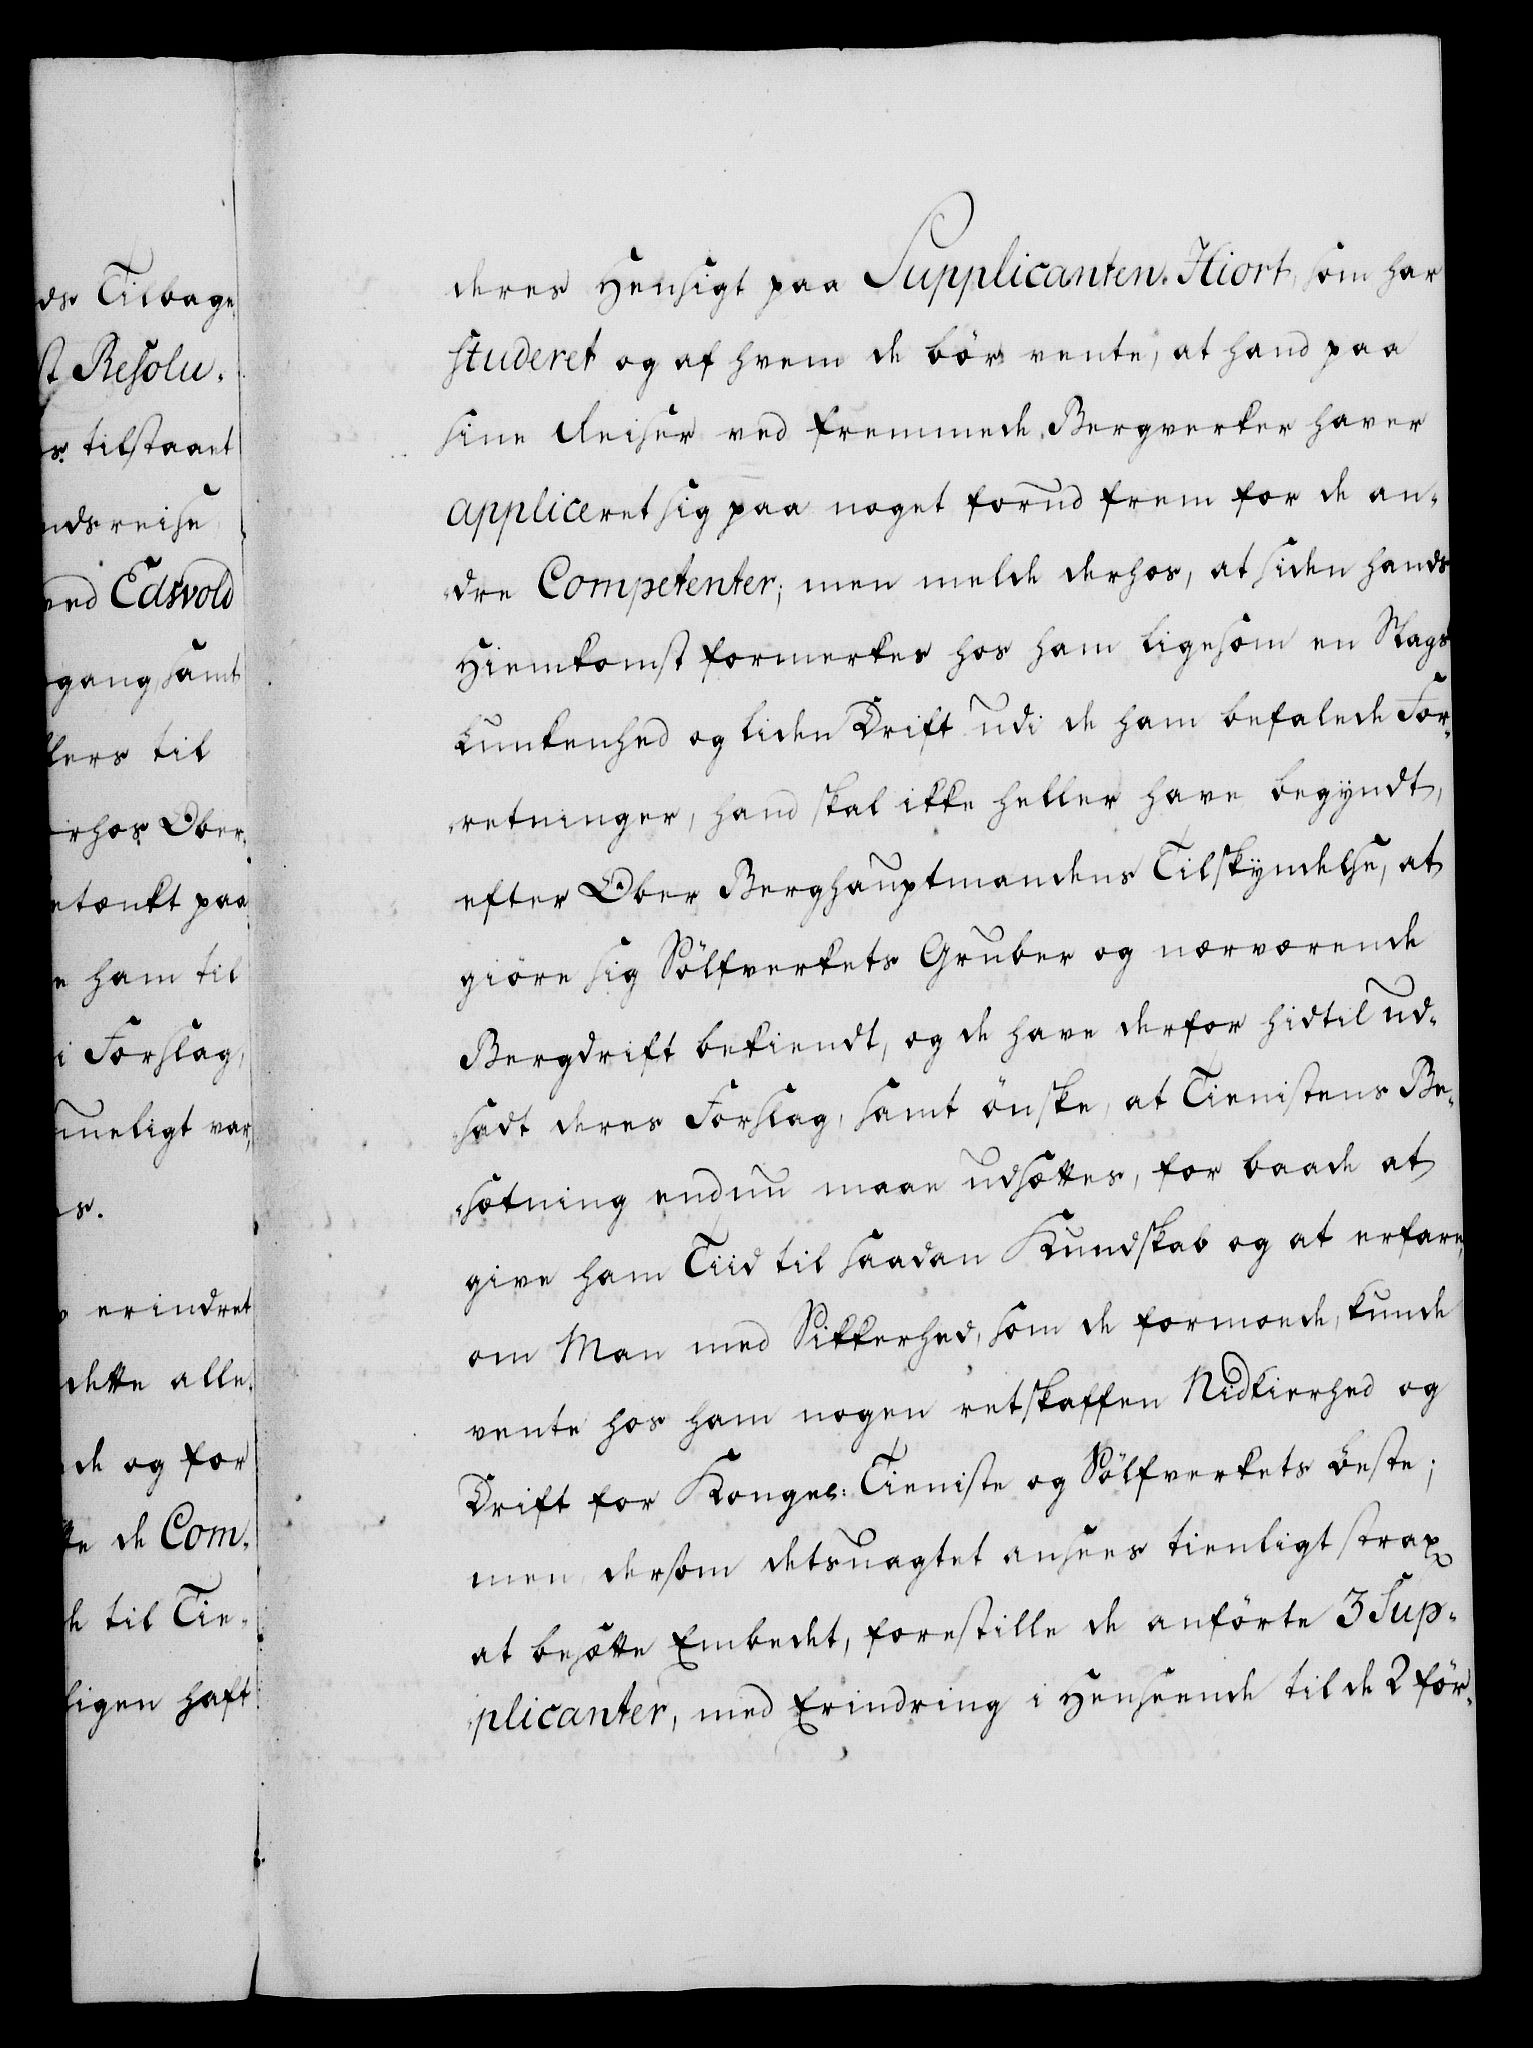 ds Tilbage-
st Resolu-
s. tilstaaet
ndsreise
ved Edsvold
gang, samt
kers til
erhos Ober-
etænkt paa
e ham til
i Forslag,
mmeligt var,
es.
erindret
dette alle-
de og for
tte de Com-
de til Tie-
ligen haft
deres Hensigt paa Supplicanten Hiort, som har
studeret og af hvem de bör vente, at hand paa
sine Reiser ved fremmede Bergverker haver
appliceret sig paa noget forud frem for de an-
dre Competenter; men melde derhos, at siden hands
Hiemkomst formerkes hos ham ligesom en Slags
Lunkenhed og liden Drift udi de ham befalede For-
retninger, hand skal ikke heller have begyndt,
efter Ober Berghauptmandens Tilskyndelse, at
giöre sig Sölfverkets Gruber og nærværende
Bergdrift bekiendt, og de have derfor hidtil ud-
sadt deres Forslag, samt önske, at Tienistens Be-
sætning endnu maae udsættes, for baade at
give ham Tiid til saadan Kundskab og at erfare,
om Man med Sikkerhed, som de formoede, kunde
vente hos ham nogen retskaffen Nidkierhed og
Drift for Kongel: Tieniste og Sölfverkets Beste;
men dersom detsuagtet ansees tienligt strax
at besætte Embedet, forestille de anförte 3 Sup-
plicanter, med Erindring i Henseende til de 2 för-